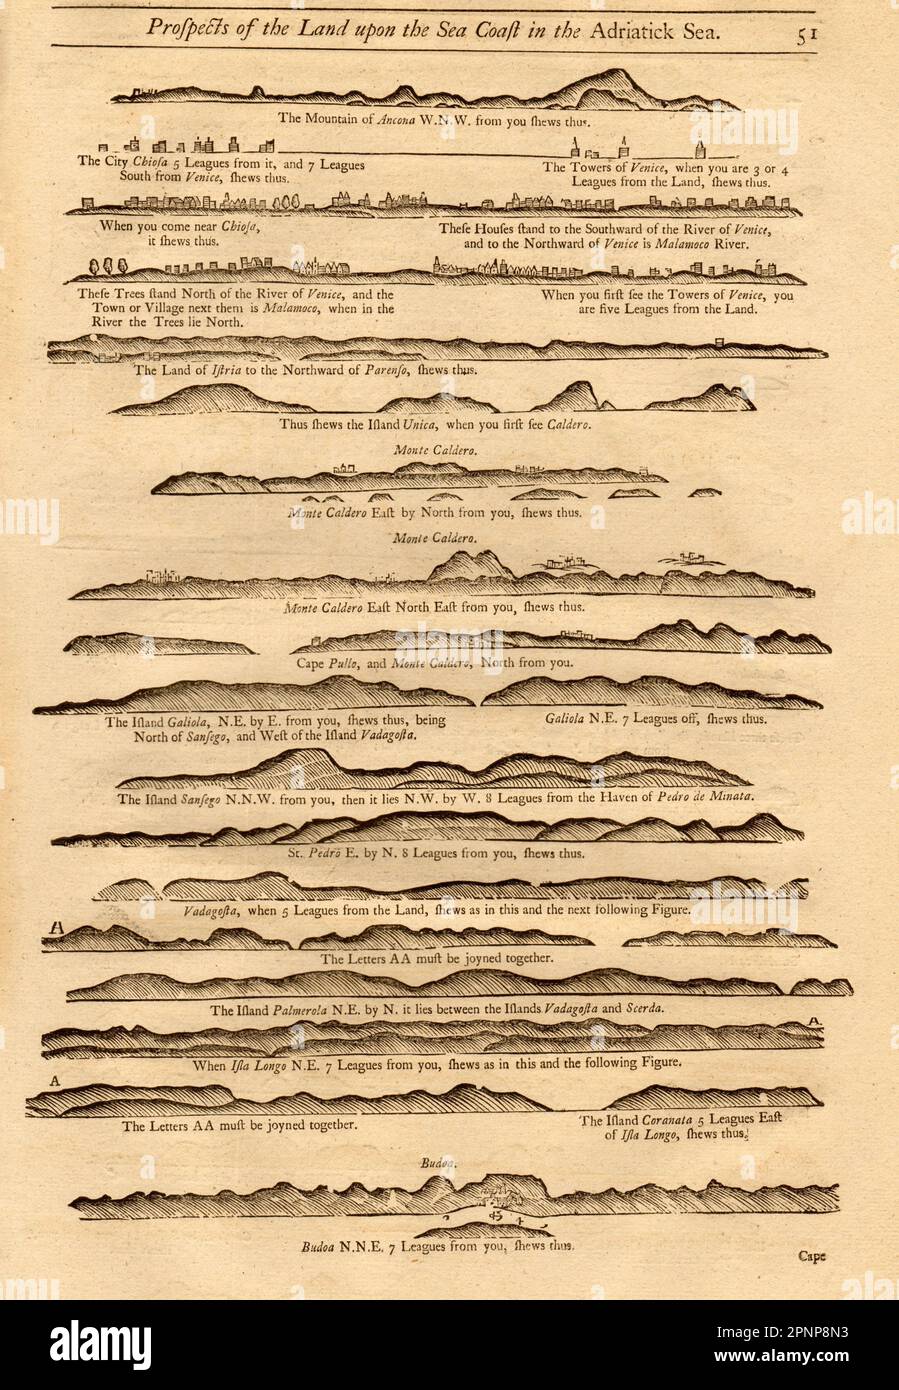 Proſpects of the Land upon the Sea Coaſt in the Adriatick Sea. 51
The Mountain of Ancona W.N.W. from you ſhews thus.
The City Chioſa 5 Leagues from it, and 7 Leagues
South from Venice, ſhews thus.
The Towers of Venice, when you are 3 or 4
Leagues from the Land, ſhews thus.
When you come near Chioſa,
it ſhews thus.
Theſe Houſes ſtand to the Southward of the River of Venice,
and to the Northward of Venice is Malamoco River.
Theſe Trees ſtand North of the River of Venice, and the
Town or Village next them is Malamoco, when in the
River the Trees lie North.
When you firſt ſee the Towers of Venice, you
are five Leagues from the Land.
The Land of Iſtria to the Northward of Parenſo, ſhews thus.
Thus ſhews the Iſland Unica, when you firſt ſee Caldero.
Monte Caldero.
Monte Caldero Eaſt by North from you, ſhews thus.
Monte Caldero.
Monte Caldero Eaſt North Eaſt from you, ſhews thus.
Cape Pullo, and Monte Caldero, North from you.
The Iſland Galiola, N.E. by E. from you, ſhews thus, being
North of Sanſego, and Weſt of the Iſland Vadagoſta.
Galiola N.E. 7 Leagues off, ſhews thus.
The Iſland Sanſego N.N.W. from you, then it lies N.W. by W. 8 Leagues from the Haven of Pedro de Minata.
St. Pedro E. by N. 8 Leagues from you, ſhews thus.
Vadagoſta, when 5 Leagues from the Land, ſhews as in this and the next following Figure.
A
The Letters AA muſt be joyned together.
The Iſland Palmerola N.E. by N. it lies between the Iſlands Vadagoſta and Scerda.
A
When Iſla Longo N.E. 7 Leagues from you, ſhews as in this and the following Figure.
A
The Letters AA muſt be joyned together.
The Iſland Coranata 5 Leagues Eaſt
of Iſla Longo, ſhews thus.
Budoa.
Budoa N.N.E. 7 Leagues from you, ſhews thus.
Cape
alamy
alamy
Image ID: 2PNP8N3
www.alamy.com